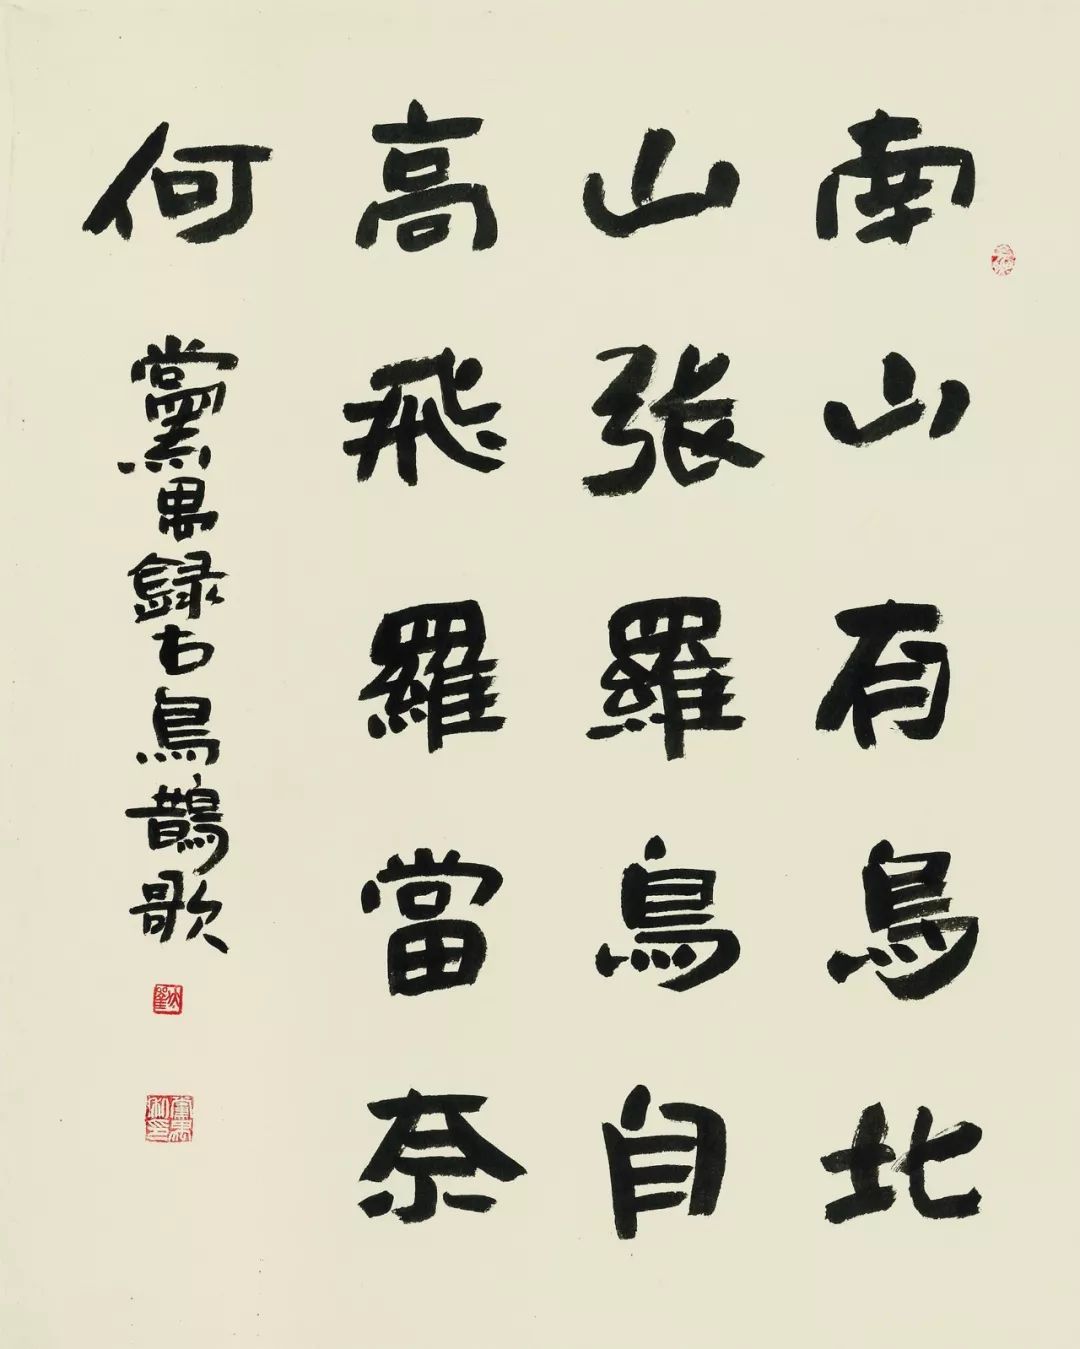 南山有鳥北
山張羅鳥自
高飛羅當奈
何
黨禺錄古烏鵲歌